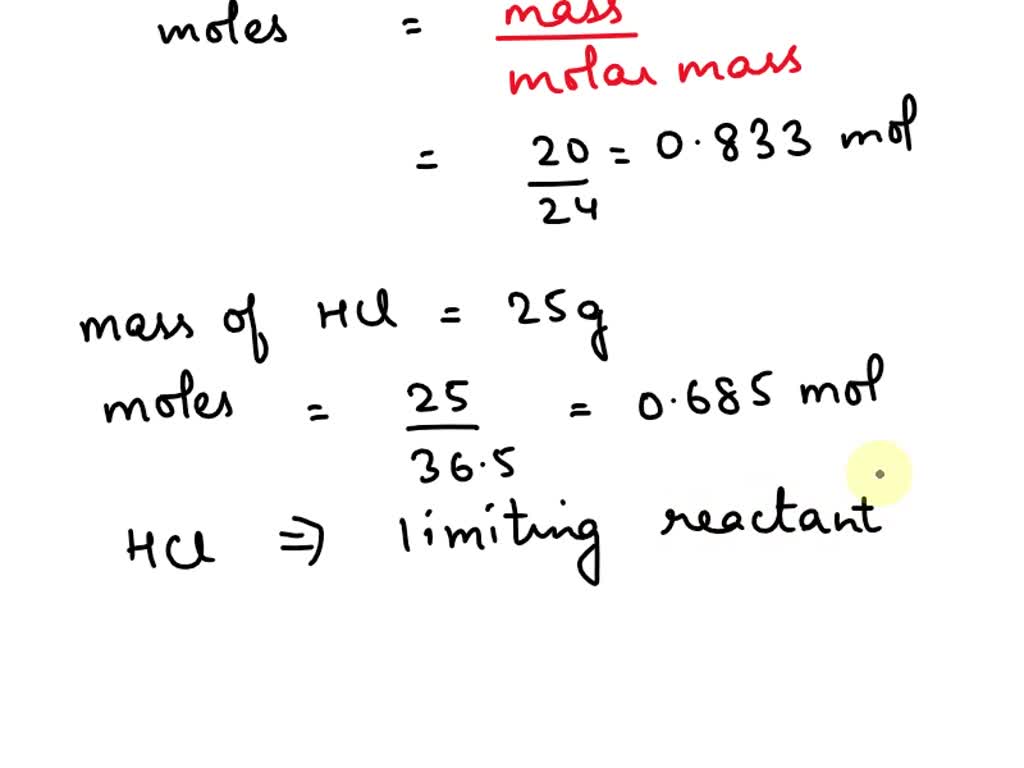 moles = mass
molar mass
= 20 = 0.833 mol
24
mass of HCl = 25g
moles = 25 = 0.685 mol
36.5
HCl ⇒ limiting reactant